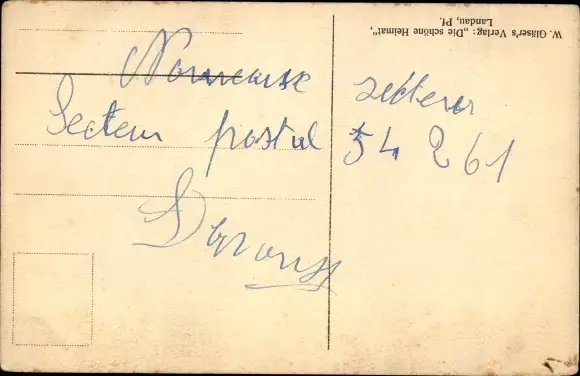 W. Gläser's Verlag: „Die schöne Heimat",
Landau, Pf.
secteur
Secteur postal 54 261